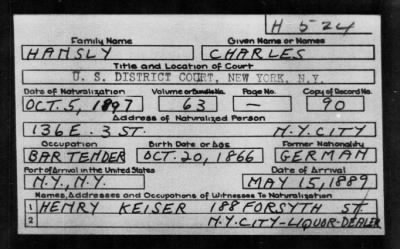 H 524
Family Name Given Name or Names
HANSLY CHARLES
Title and Location of Court
U. S. DISTRICT COURT, NEW YORK, N.Y.
Date of Naturalization Volume or Bundle No. Page No. Copy of Record No.
OCT. 5, 1897 63 — 90
Address of Naturalized Person
136 E. 3 ST. N.Y. CITY
Occupation Birth Date or Age Former Nationality
BARTENDER OCT. 20, 1866 GERMAN
Port of Arrival in the United States Date of Arrival
N.Y., N.Y. MAY 15, 1889
Names, Addresses and Occupations of Witnesses To Naturalization
1 HENRY KEISER 188 FORSYTH ST.
2 N.Y. CITY-LIQUOR-DEALER